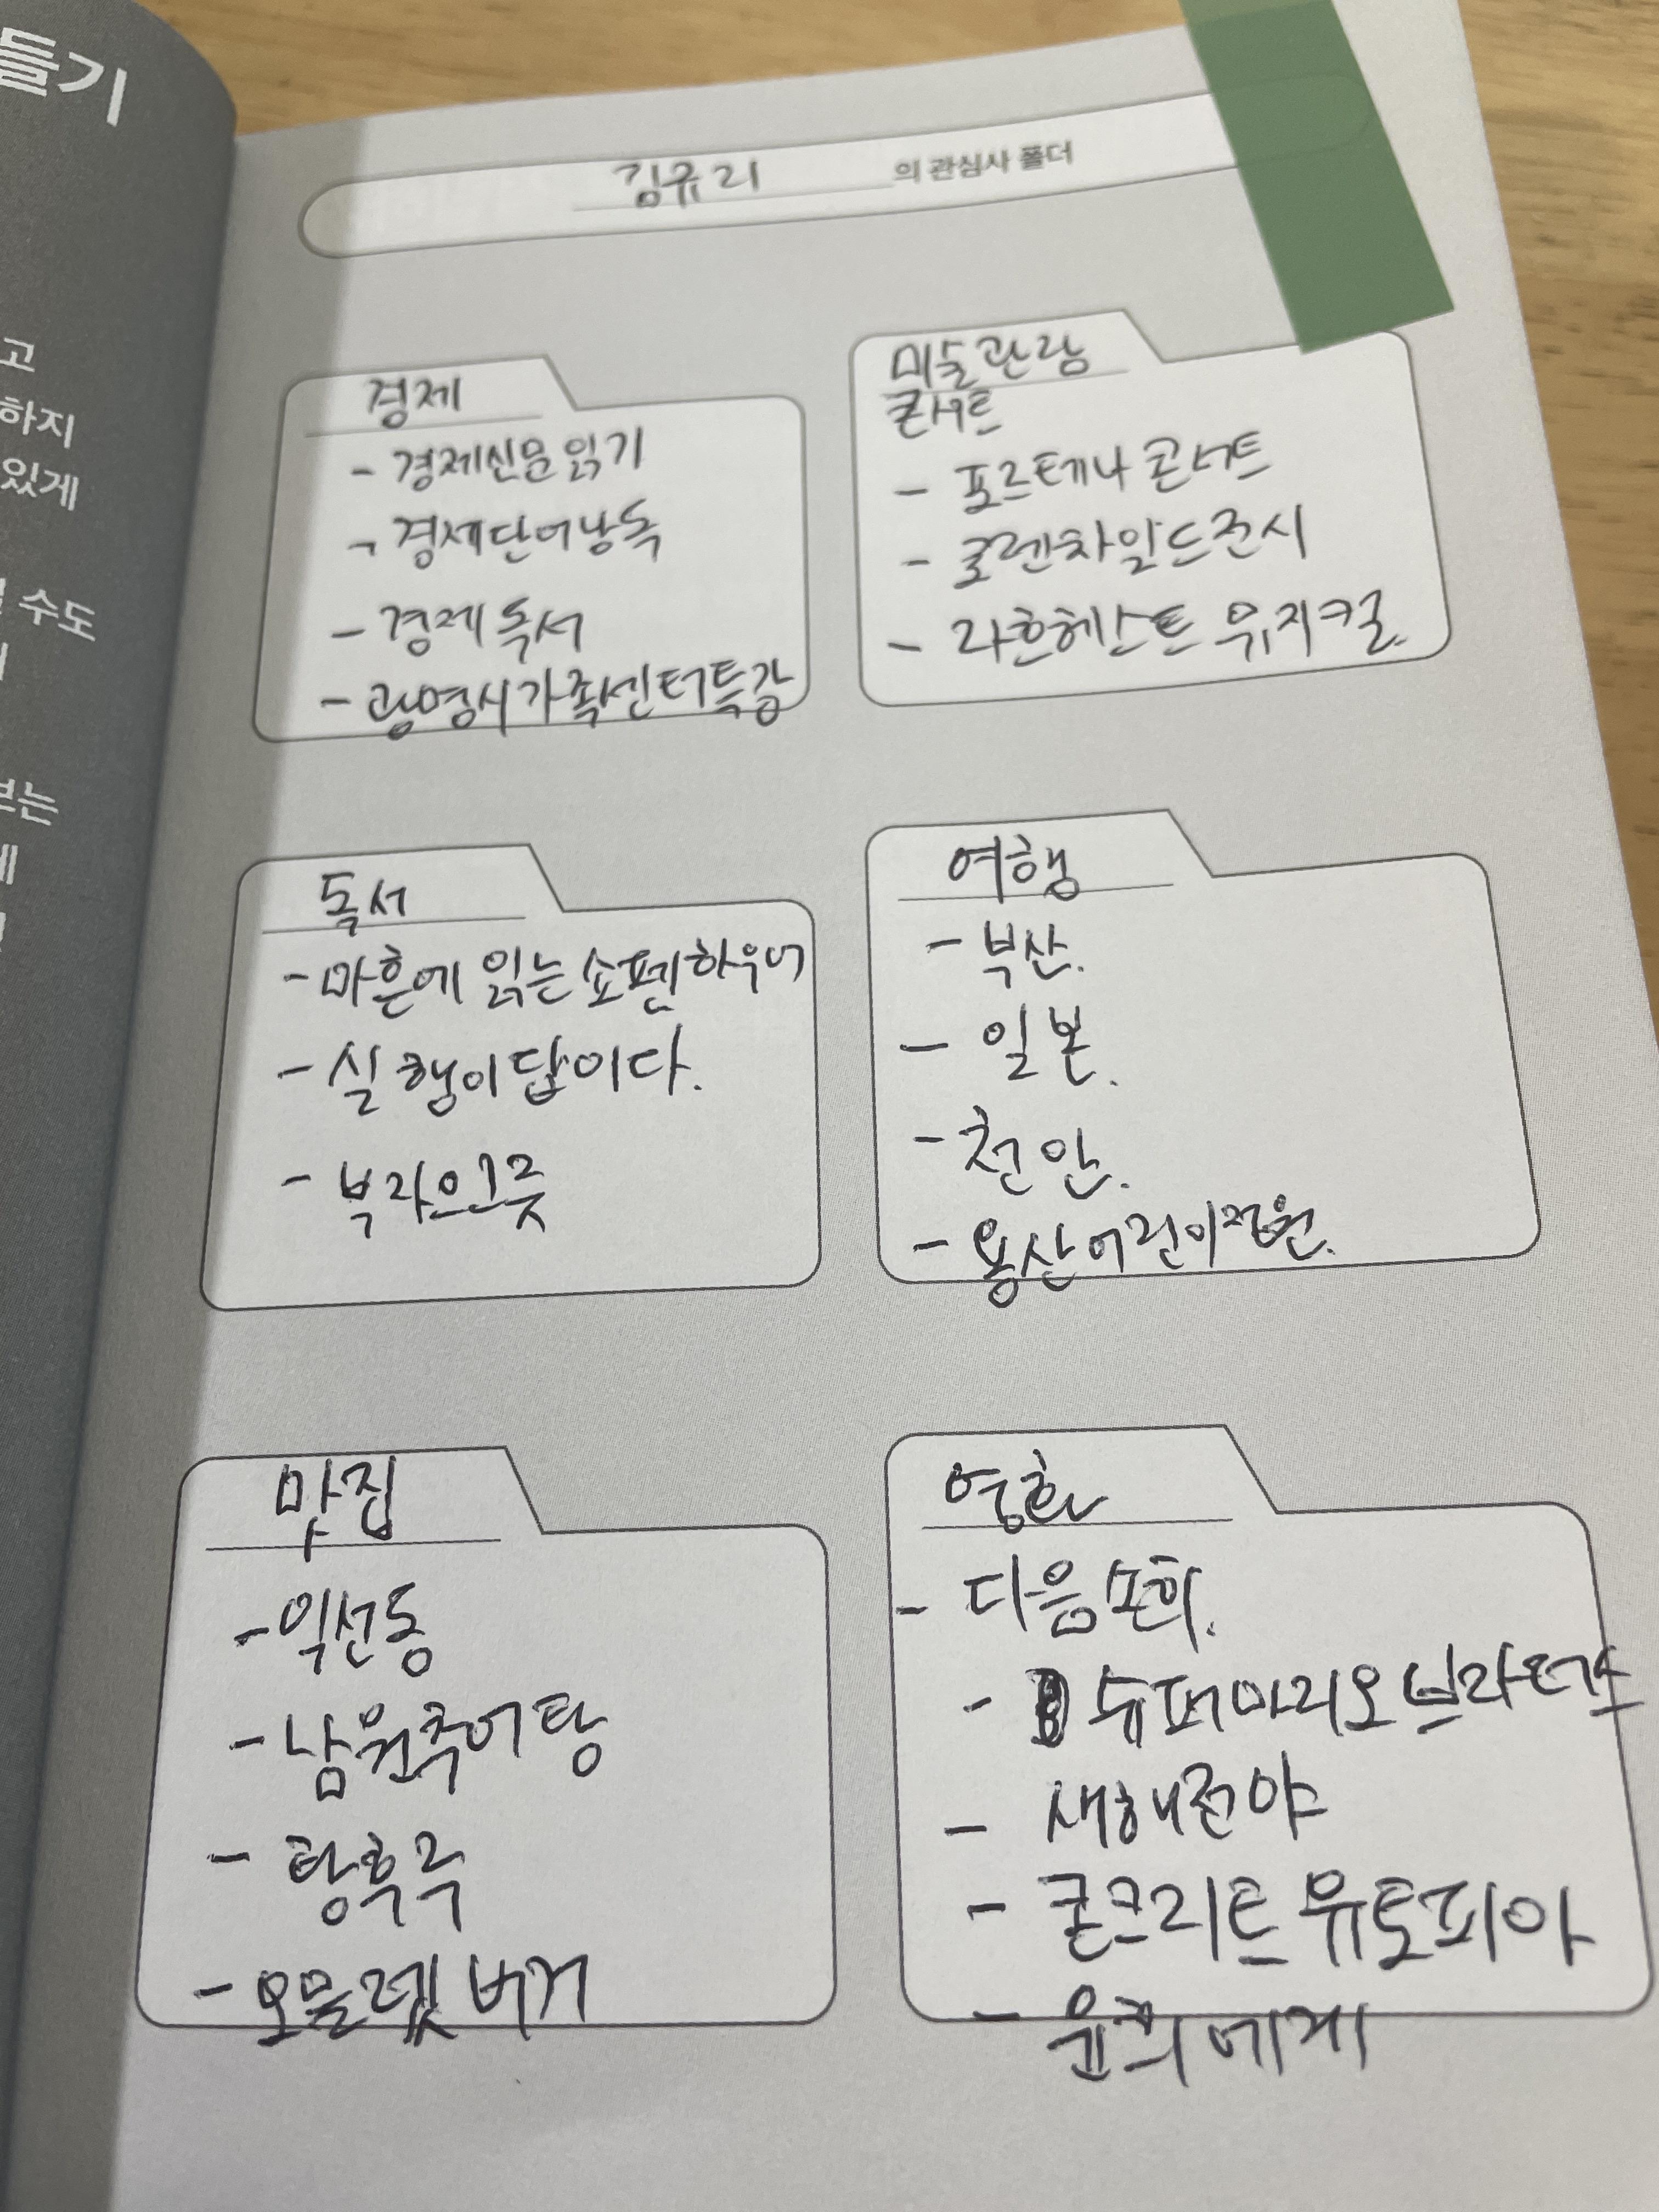 들기
고
하지
있게
수도
보는
김규리의 관심사 폴더
경제
- 경제신문 읽기
- 경제단어낭독
- 경제 독서
- 광명시가족센터특강
미술관람
콘서트
- 포르테나 콘서트
- 쿨렌차일드전시
- 라흐헤스트 뮤지컬.
독서
- 마흔에 읽는 쇼펜하우어
- 실행이답이다.
- 부자의그릇
여행
- 부산.
- 일본.
- 천안.
- 용산어린이정원.
맛집
- 익선동
- 남원추어탕
- 탕후루
- 오믈렛 버거
영화
- 다음소희.
- 슈퍼마리오 브라더스
- 새해전야
- 콘크리트 유토피아
- 윤희에게